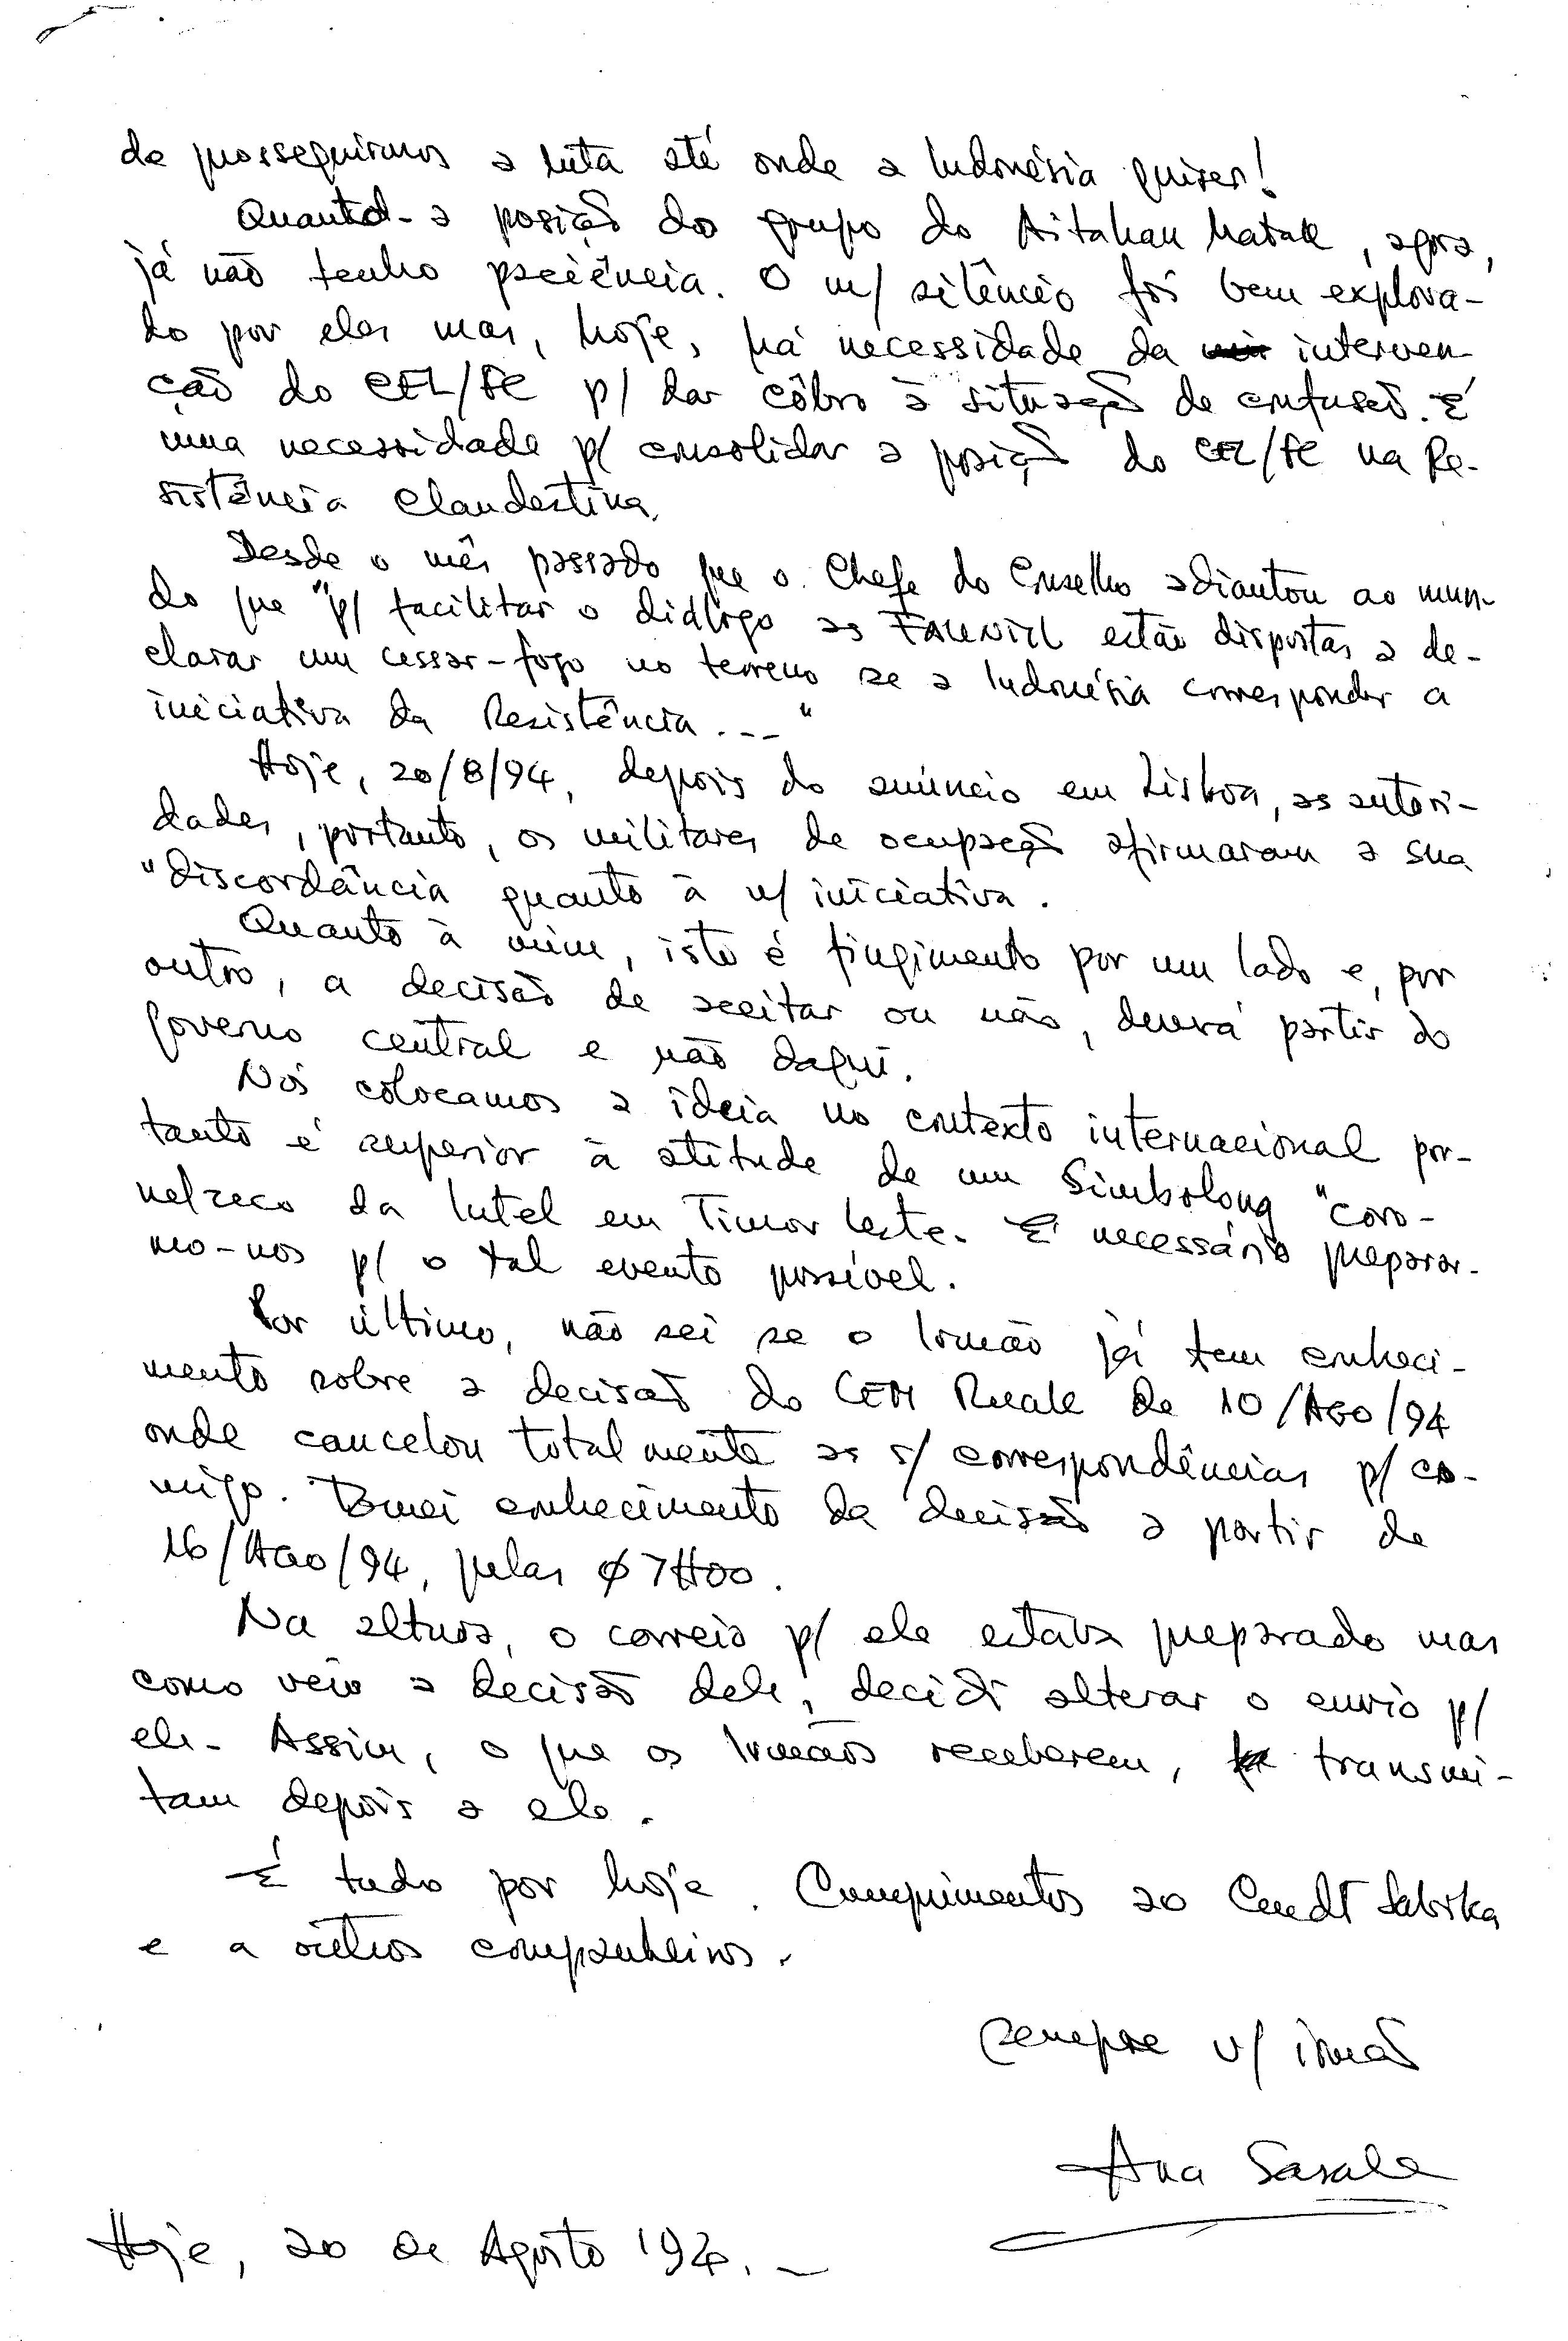 de prosseguirmos a luta até onde a Indonésia quiser!
Quanto a posição do grupo do Aitahan Matak, agora,
já não tenho paciência. O m/ silêncio foi bem explora-
do por eles mas, hoje, há necessidade da interven
ção do CEL/FC p/ dar côbro à situação de confusão. É
uma necessidade p/ consolidar a posição do CEL/FC na Re-
sistência Clandestina.
Desde o mês passado que o Chefe do Conselho adiantou ao mun-
do que "p/ facilitar o diálogo as FALINTIL estão dispostas a de-
clarar um cessar-fogo no terreno se a Indonésia corresponder a
iniciativa da Resistência..."
Hoje, 20/8/94, depois do anúncio em Lisboa, as autori-
dades, portanto, os militares de ocupação afirmaram a sua
"discordância quanto à n/ iniciativa.
Quanto à mim, isto é fingimento por um lado e, por
outro, a decisão de aceitar ou não, deverá partir do
governo central e não daqui.
Nós colocamos a ideia no contexto internacional por-
tanto é superior à atitude de um Simbolong "coro-
nelzeco da Intel em Timor Leste. É necessário preparar-
mo-nos p/ o tal evento possível.
Por último, não sei se o Irmão já tem conheci-
mento sobre a decisão do CEM Ruak de 10/AGO/94
onde cancelou totalmente as s/ correspondências p/ co-
migo. Tomei conhecimento da decisão a partir de
16/AGO/94, pelas 07H00.
Na altura, o correio p/ ele estava preparado mas
como veio a decisão dele, decidi alterar o envio p/
ele. Assim, o que os Irmãos receberem, transmi-
tam depois a ele.
É tudo por hoje. Cumprimentos ao Cmdt Sabika
e a outros companheiros.
Sempre v/ irmão
Ana Sasale
Hoje, 20 de Agosto '94.-